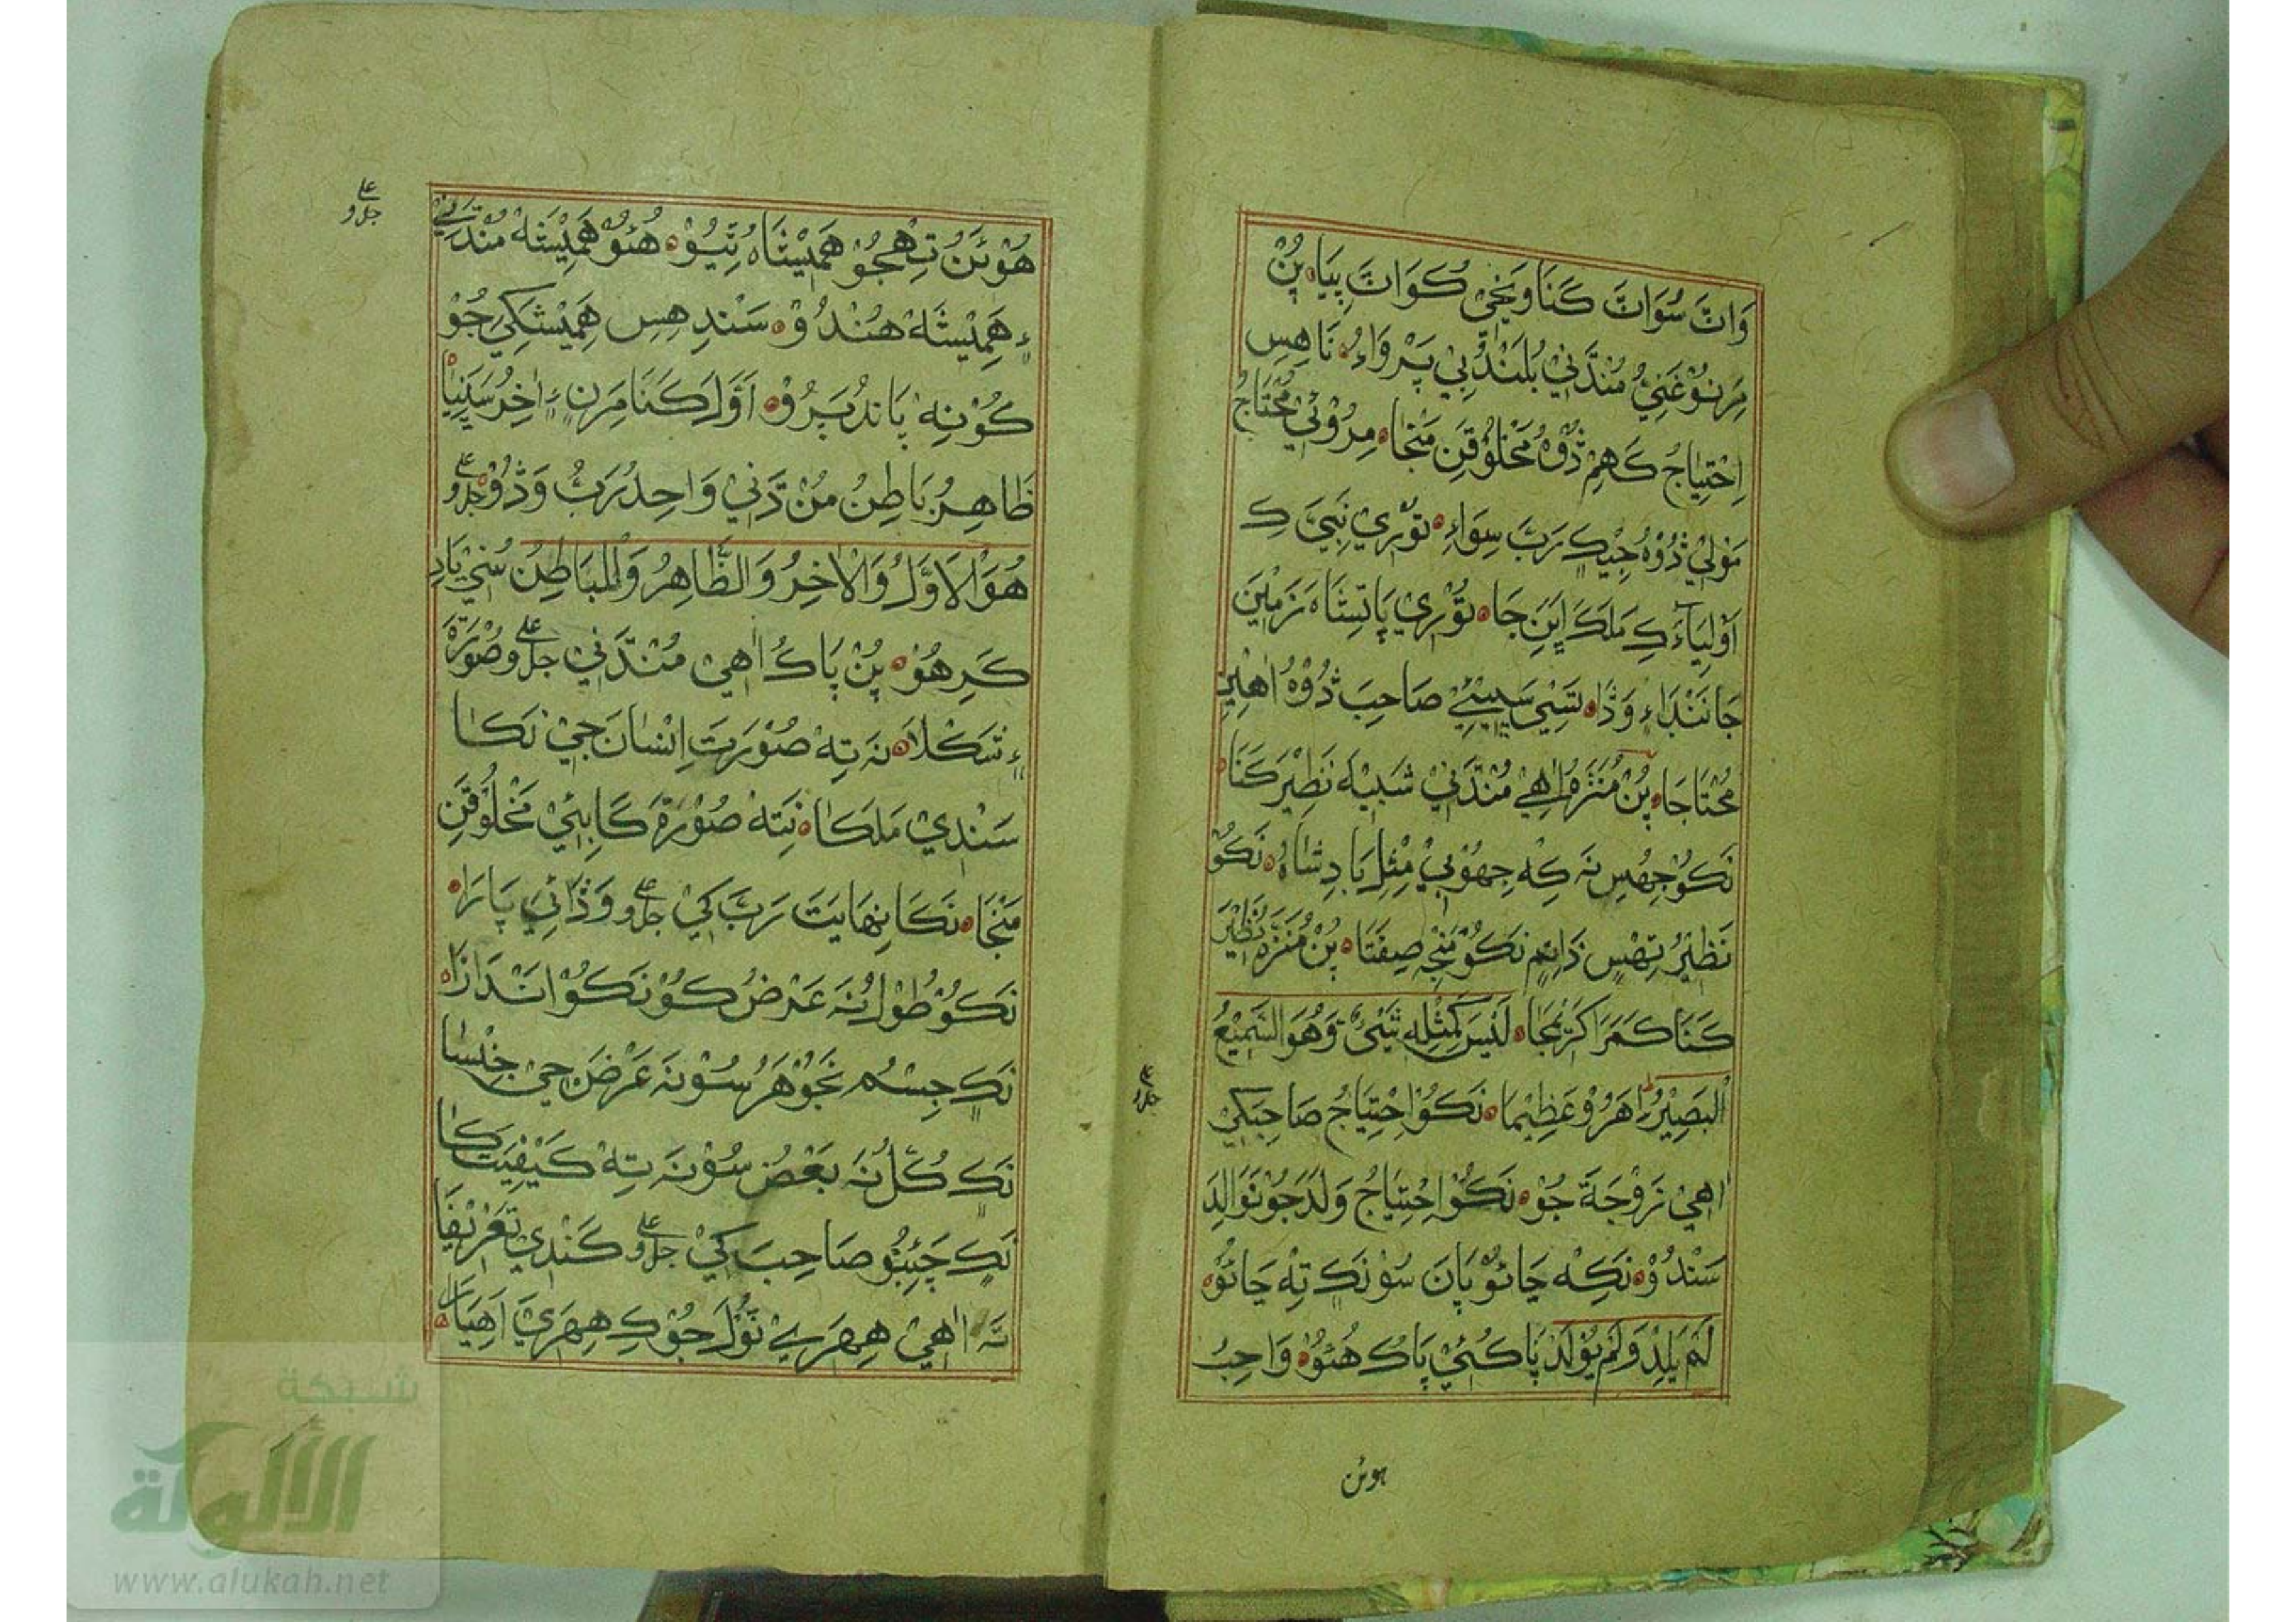 وَاتَ سُوَاتَ كَنَا وَنَجِيْ كُوَاتَ پِيَاه پُنْ
مِرَنُوْ غَنِيُّ مُنْدَّنِيْ بُلَنْدُ بِيْ پَرْوَاءِ نَاهِسِ
اِحْتِيَاجُ كَهِمْ ذُوْهُ مَخْلُوْقَنِ مَنْجَا مِرُوْئِيْ مُحْتَاجُ
مَوْلِيْ ذُوْهُ جِيْكِ رَبَّ سِوَاءِ تَوْرِيْ نَبِيَّ كِ
اَوْلِيَآءَ كِ مَلَكَ اِيَنِ جَاه تَوْرِيْ پَاتِشَاهَ زَمِيْنَ
جَا نَنْدَاءِ وَذَا سَيِيْئِيْ صَاحِبَ ذُوْهُ اٰهِيْنِ
مُحْتَاجَا پُنْ مُنَزَّهُ اٰهِيْ مُنْدَّنِيْ شَبِيْهَ نَظِيْرَ كَنَا
نَكُوْ جِهُسِ نَہ كِهْ جِهُوْبِيْ مِثْلِ بَادِشَاهُ نَكُوْ
نَظِيْرُ تِهْسِ ذَاتِمِ نَكُوْ مَنْجِهِ صِفَتَا پُنْ مُنَزَّهُ نَظِيْرَ
كَنَا كَمَرَا كَرَّنْجَا لَيْسَ كَمِثْلِهٖ شَيْئٌ وَهُوَ السَّمِيْعُ
الْبَصِيْرُ اَهَرُوْ عَظِيْمَا نَكُوْ اِحْتِيَاجُ صَاحِبَكِيْ
جل وعلى
اٰهِيْ زَوْجَةَ جُوْ نَكُوْ اِحْتِيَاجُ وَلَدَ جُوْ نَوَالِدَ
سَنْدُوْ نَكِهْ جَائُوْ پَانَ سُوْ نَكِ تِهْ جَائُوْ
لَمْ يَلِدْ وَلَمْ يُوْلَدْ پَاكُئِيْ پَاكُ هُئُوْ وَاجِبُ
هوئن
هُوْئَنُ تِهْجُوْ هَمِيْشَاهُ تِيُوْ هُئُوْ هَمِيْشَهْ مُنْدَّنِيْ
جل وعلى
ءِ هَمِيْشَهْ هُنْدُوْ سَنْدِ هِسِ هَمِيْشَكِيْ جُوْ
كُوْنِهْ پَانْدُ پَرُوْ اَوَّلَ كَنَا مَرَنِ ءِ اٰخِرُ سَيَنِيَاْ
ظَاهِرُ بَاطِنُ مُنْدَّنِيْ وَاحِدُ رَبُّ وَڎُوْ جل وعلى
هُوَ الْاَوَّلُ وَالْاٰخِرُ وَالظَّاهِرُ وَالْبَاطِنُ سُنِيْ يَادِ
كَرِ هُوْ پُنْ پَاكُ اٰهِيْ مُنْدَّنِيْ جل وعلى صُوْرَةَ
ءِ شَكْلَا نَہ تِهْ صُوْرَتَ اِنْسَانَ جِيْ نَكَا
سَنْدِيْ مَلَكَا نَتِهْ صُوْرَةَ كَابِئِيْ مَخْلُوْقَنِ
مَنْجَا نَكَا نِهَايَتَ رَبَّ كِيْ جل وعلى وَذَائِيْ پَارَا
نَكُوْ طُوْلُ نَہ عَرْضُ كُوْ نَكُوْ اَنْدَازَا
نَكِ جِسْمُ نَجَوْهَرُ سُوْنَہ عَرْضَ جِيْ جِنْسَا
نَكِ كُلُّ نَہ بَعْضُ سُوْنَہ تِهْ كَيْفِيَتَاكَا
نَكِ چَئِبُوْ صَاحِبَ كِيْ جل وعلى كَنْدِيْ تَعْرِيْفَا
تَہ اٰهِيْ هِهَرِيْ تَوْلَ جُوْ كِ هِهَرِيَ اَهِيَا
شبكة
الألوكة
www.alukah.net